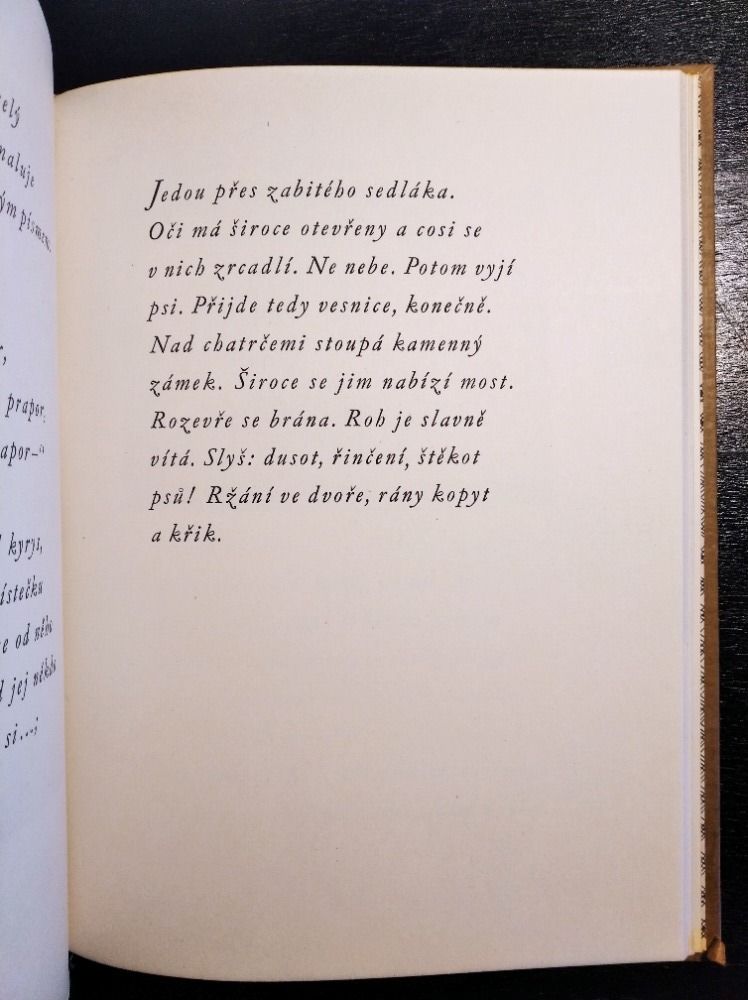 maluje
prapor,
apor–“
kyrys,
ístečku
e od něho
jej někdo
si...;
Jedou přes zabitého sedláka.
Oči má široce otevřeny a cosi se
v nich zrcadlí. Ne nebe. Potom vyjí
psi. Přijde tedy vesnice, konečně.
Nad chatrčemi stoupá kamenný
zámek. Široce se jim nabízí most.
Rozevře se brána. Roh je slavně
vítá. Slyš: dusot, řinčení, štěkot
psů! Ržání ve dvoře, rány kopyt
a křik.